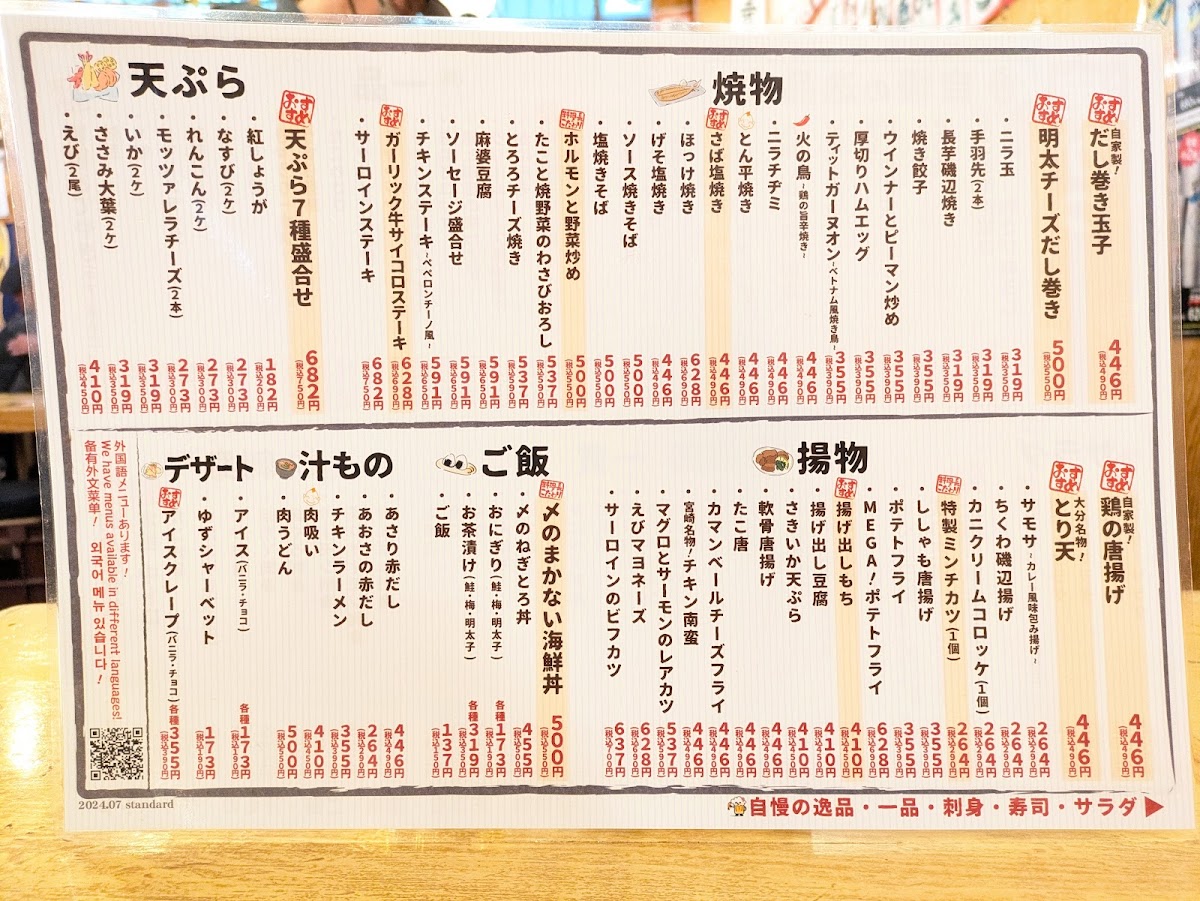 焼物
おすすめ
自家製!
だし巻き玉子 446円 (税込490円)
おすすめ
明太チーズだし巻き 500円 (税込550円)
・ニラ玉 319円 (税込350円)
・手羽先(2本) 319円 (税込350円)
・長芋磯辺焼き 319円 (税込350円)
・焼き餃子 355円 (税込390円)
・ウインナーとピーマン炒め 355円 (税込390円)
・厚切りハムエッグ 355円 (税込390円)
・ティットガーヌオン~ベトナム風焼き鳥~ 355円 (税込390円)
・火の鳥~鶏の旨辛焼き~ 446円 (税込490円)
・ニラチヂミ 446円 (税込490円)
・とん平焼き 446円 (税込490円)
おすすめ
さば塩焼き 446円 (税込490円)
・ほっけ焼き 628円 (税込690円)
・げそ塩焼き 446円 (税込490円)
・ソース焼きそば 500円 (税込550円)
・塩焼きそば 500円 (税込550円)
ホルモンと野菜炒め 500円 (税込550円)
・たこと焼野菜のわさびおろし 537円 (税込590円)
・とろろチーズ焼き 537円 (税込590円)
・麻婆豆腐 591円 (税込650円)
・ソーセージ盛合せ 591円 (税込650円)
・チキンステーキ~ペペロンチーノ風~ 591円 (税込650円)
おすすめ
ガーリック牛サイコロステーキ 628円 (税込690円)
・サーロインステーキ 682円 (税込750円)
天ぷら
おすすめ
天ぷら7種盛合せ 682円 (税込750円)
・紅しょうが 182円 (税込200円)
・なすび(2ケ) 273円 (税込300円)
・れんこん(2ケ) 273円 (税込300円)
・モッツァレラチーズ(2本) 273円 (税込300円)
・いか(2ケ) 319円 (税込350円)
・ささみ大葉(2ケ) 319円 (税込350円)
・えび(2尾) 410円 (税込450円)
揚物
おすすめ
自家製!
鶏の唐揚げ 446円 (税込490円)
おすすめ
大分名物!
とり天 446円 (税込490円)
・サモサ~カレー風味包み揚げ~ 264円 (税込290円)
・ちくわ磯辺揚げ 264円 (税込290円)
・カニクリームコロッケ(1個) 264円 (税込290円)
特製ミンチカツ(1個) 264円 (税込290円)
・ししゃも唐揚げ 355円 (税込390円)
・ポテトフライ 355円 (税込390円)
・MEGA!ポテトフライ 628円 (税込690円)
おすすめ
揚げ出しもち 410円 (税込450円)
・揚げ出し豆腐 410円 (税込450円)
・さきいか天ぷら 410円 (税込450円)
・軟骨唐揚げ 446円 (税込490円)
・たこ唐 446円 (税込490円)
・カマンベールチーズフライ 446円 (税込490円)
・宮崎名物!チキン南蛮 446円 (税込490円)
・マグロとサーモンのレアカツ 537円 (税込590円)
・えびマヨネーズ 628円 (税込690円)
・サーロインのビフカツ 637円 (税込700円)
ご飯
〆のまかない海鮮丼 500円 (税込550円)
・〆のねぎとろ丼 455円 (税込500円)
・おにぎり(鮭・梅・明太子) 各種173円 (税込190円)
・お茶漬け(鮭・梅・明太子) 各種319円 (税込350円)
・ご飯 137円 (税込150円)
汁もの
・あさり赤だし 446円 (税込490円)
・あおさの赤だし 264円 (税込290円)
・チキンラーメン 355円 (税込390円)
・肉吸い 410円 (税込450円)
・肉うどん 500円 (税込550円)
デザート
・アイス(バニラ・チョコ) 各種173円 (税込190円)
・ゆずシャーベット 173円 (税込190円)
おすすめ
アイスクレープ(バニラ・チョコ) 各種355円 (税込390円)
外国語メニューあります!
We have menus available in different languages!
备有外文菜单! 외국어 메뉴 있습니다!
2024.07 standard
自慢の逸品・一品・刺身・寿司・サラダ▶